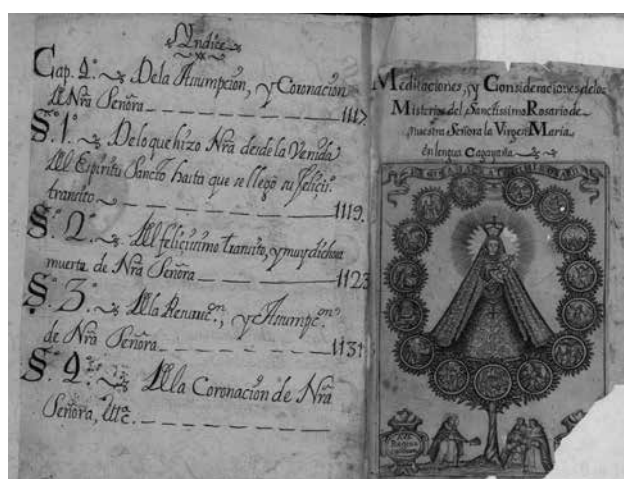 Yndice
Cap. 4.º De la Assumpcion, y Coronacion
de Nrã Señora 1117
§. 1.º De lo que hizo Nrã desde la Venida
del Espiritu Sancto hasta que se llegò su feliçis.º
transito 1119.
§. 2.º Del feliçissimo transito, y muy dichosa
muerte de Nrã Señora 1123
§. 3.º De la Resurrec.ⁿ, y Assumpc.ⁿ
de Nrã Señora 1131
§. 4.º De la Coronacion de Nrã
Señora, Utc.
Meditaciones, y Consideraciones de los
Misterios del Sanctissimo Rosario de
nuestra Señora la Virgen Maria.
en lengua Cagayana